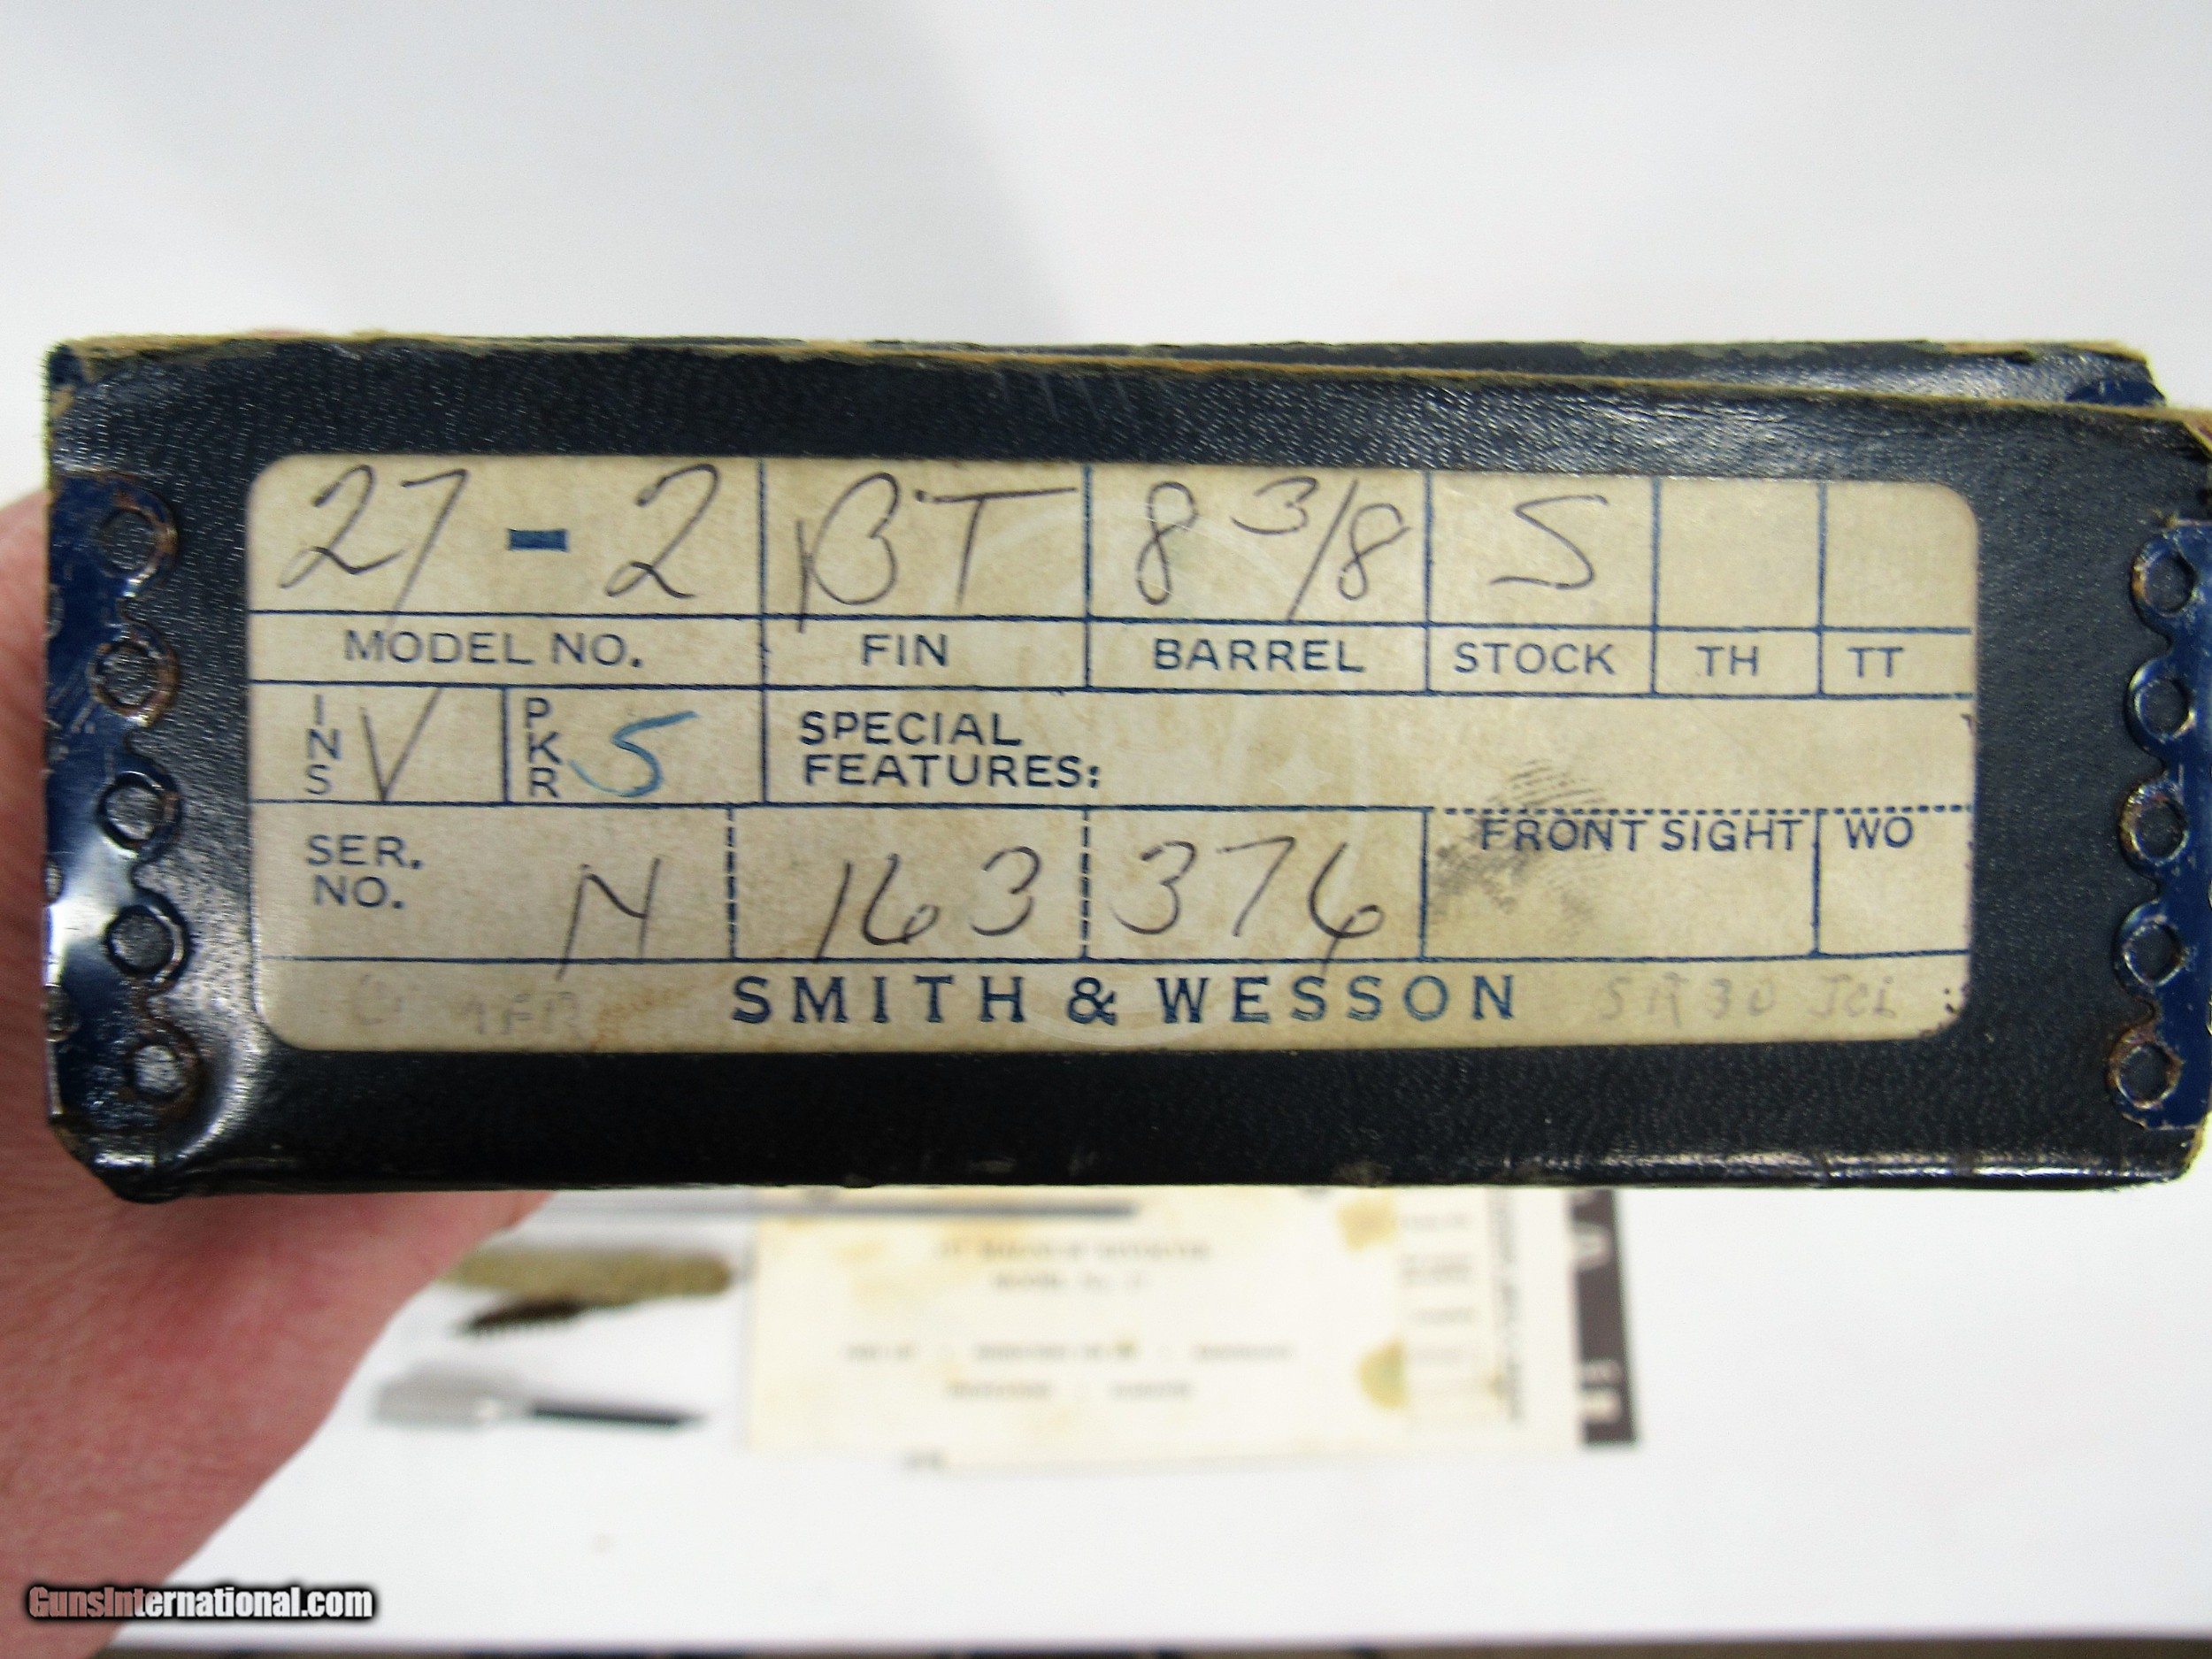 27-2 BT 8 3/8 S
MODEL NO. FIN BARREL STOCK TH TT
INS V PKR S SPECIAL
FEATURES:
SER.
NO. N 163 376 FRONT SIGHT WO
SMITH & WESSON
GunsInternational.com